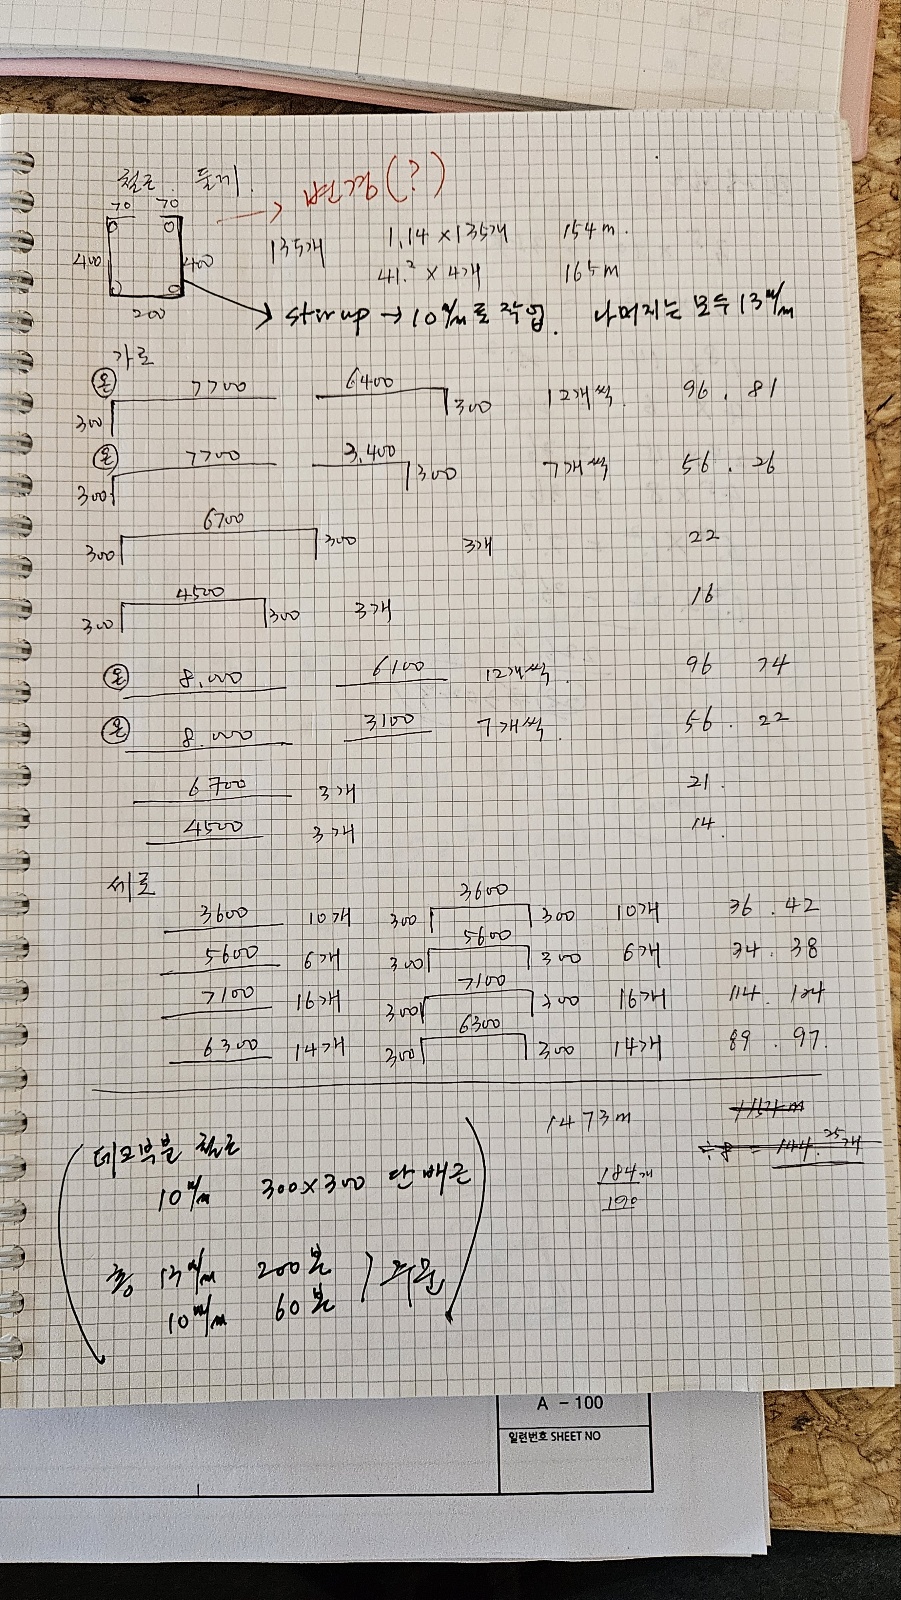 철근 둘레.
70 70
변경(?)
400 400
200
135개 1.14 × 135개 154m.
41.2 × 4개 165m
stirrup → 10m/m로 작업. 나머지는 모두 13m/m
가로
온 300 7700 6400 300 12개씩. 96. 81
온 300 7700 3,400 300 7개씩 56. 26
300 6700 300 3개 22
300 4500 300 3개 16
온 8.000 6100 12개씩. 96 74
온 8.000 3100 7개씩. 56. 22
6700 3개 21.
4500 3개 14.
세로
3600 10개 300 3600 300 10개 36. 42
5600 6개 300 5600 300 6개 34. 38
7100 16개 300 7100 300 16개 114. 124
6300 14개 300 6300 300 14개 89. 97.
1473m
÷8 = 144.25개
184개
190
데모부분 철근
10m/m 300×300 단배근
총 13m/m 200본
10m/m 60본 ) 주문
A - 100
일련번호 SHEET NO